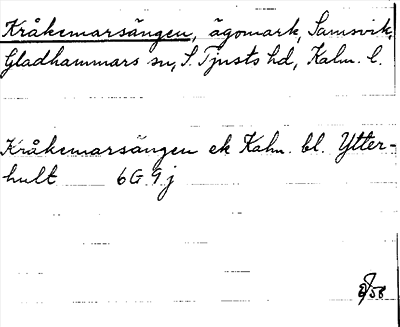 Kråkemarsängen, ägomark, Samsvik,
Gladhammars sn, S. Tjusts hd, Kalm. l.
Kråkemarsängen ek Kalm. bl. Ytter-
hult 6G 9j